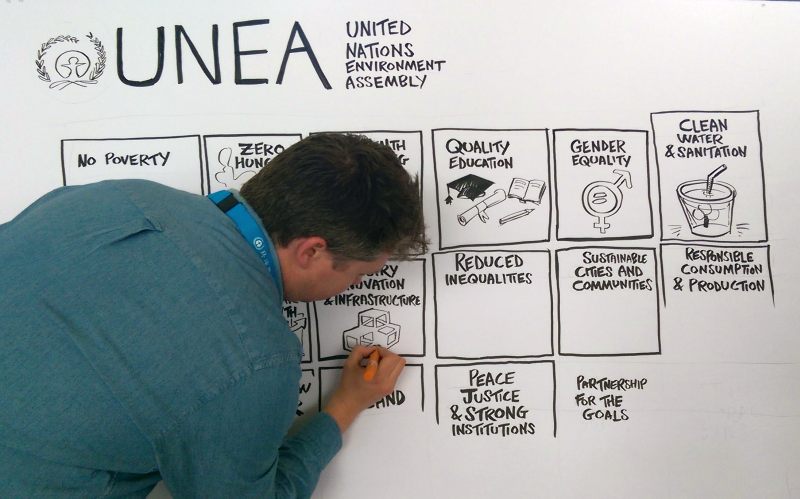 UNEA
UNITED
NATIONS
ENVIRONMENT
ASSEMBLY
NO POVERTY
ZERO
QUALITY
EDUCATION
GENDER
EQUALITY
CLEAN
WATER
& SANITATION
& INFRASTRUCTURE
REDUCED
INEQUALITIES
SUSTAINABLE
CITIES AND
COMMUNITIES
RESPONSIBLE
CONSUMPTION
& PRODUCTION
PEACE
JUSTICE
& STRONG
INSTITUTIONS
PARTNERSHIP
FOR THE
GOALS